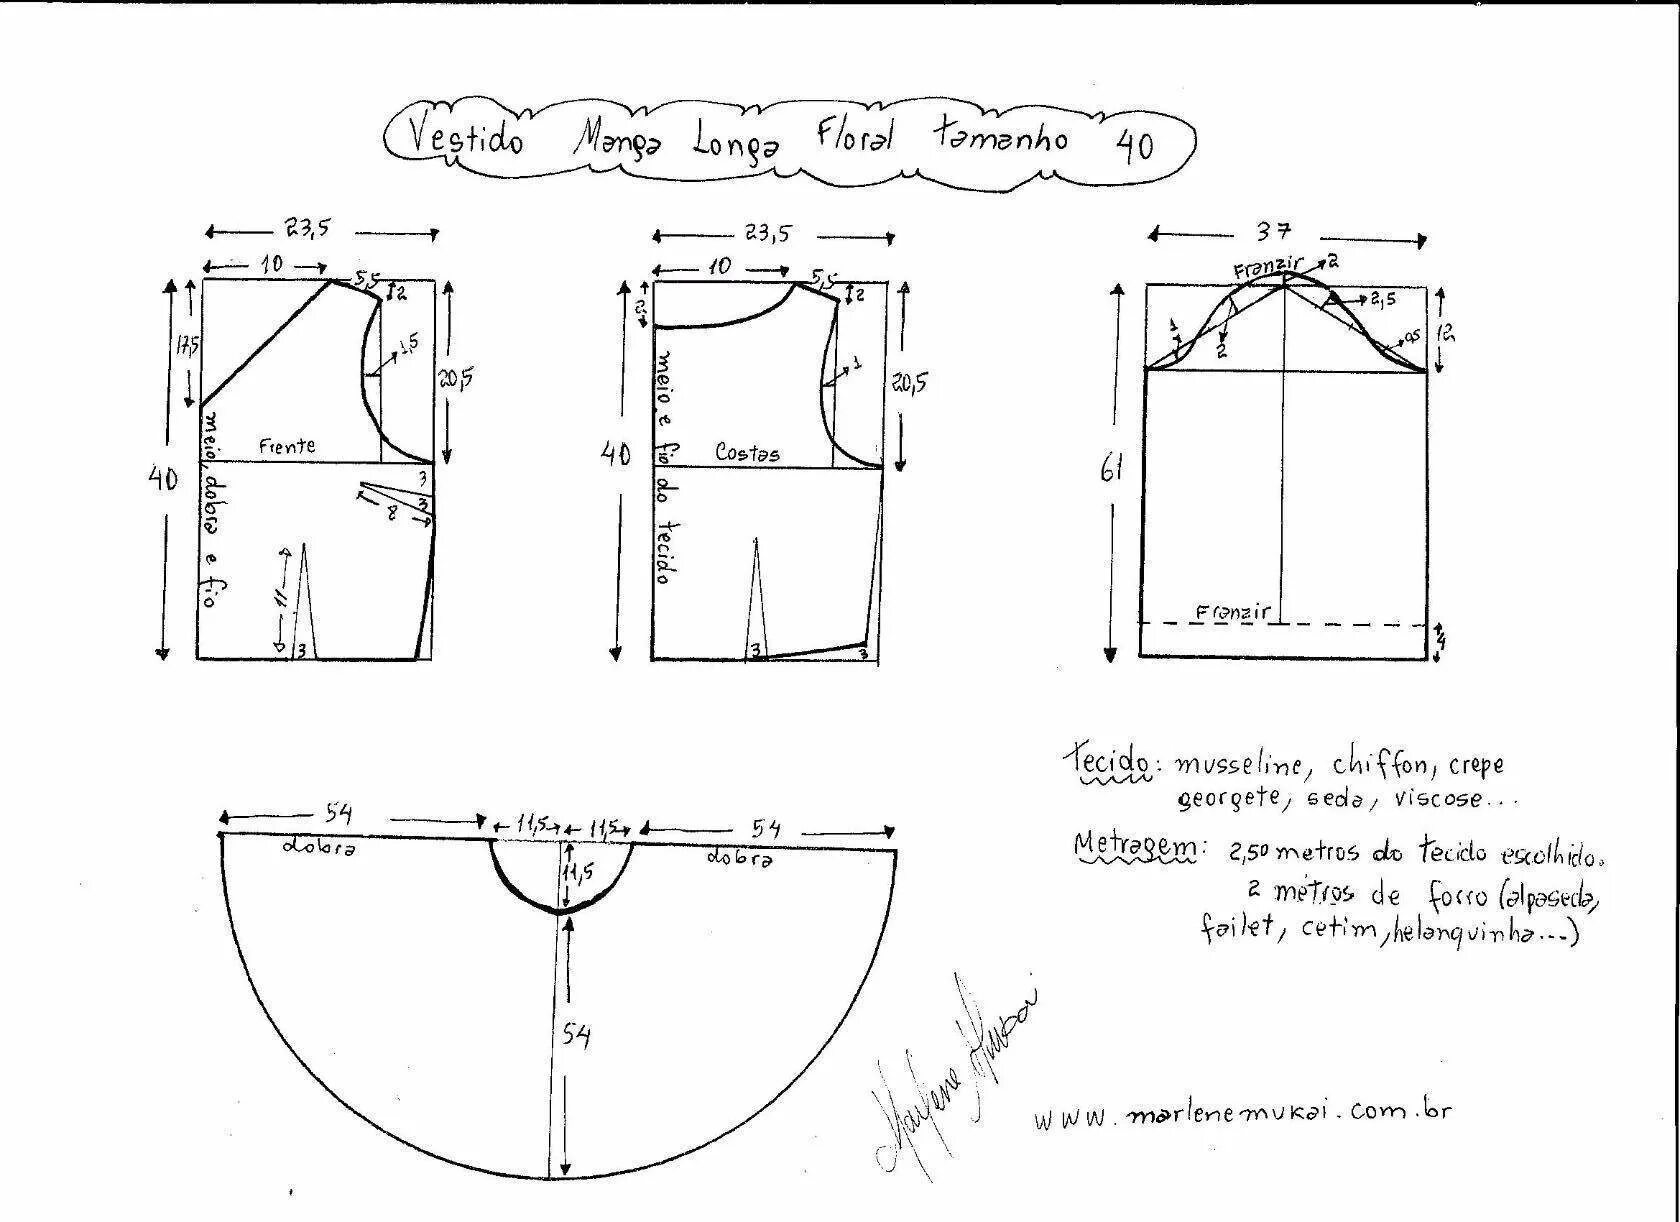 Vestido Manga Longa Floral Tamanho 40
23,5
10
5,5
2
17,5
1,5
20,5
40
Frente
meio, dobra e fio
3
3
8
11
3
23,5
10
5,5
2
2
1
20,5
40
Costas
meio e fio do tecido
3
3
37
Franzir
2
2,5
1
2
0,5
12
61
Franzir
4
54
11,5
11,5
54
dobra
dobra
11,5
54
Tecido: musseline, chiffon, crepe
georgete, seda, viscose...
Metragem: 2,50 metros do tecido escolhido.
2 metros de forro (alpaseda,
failet, cetim, helanquinha...)
Marlene Mukai
www.marlenemukai.com.br